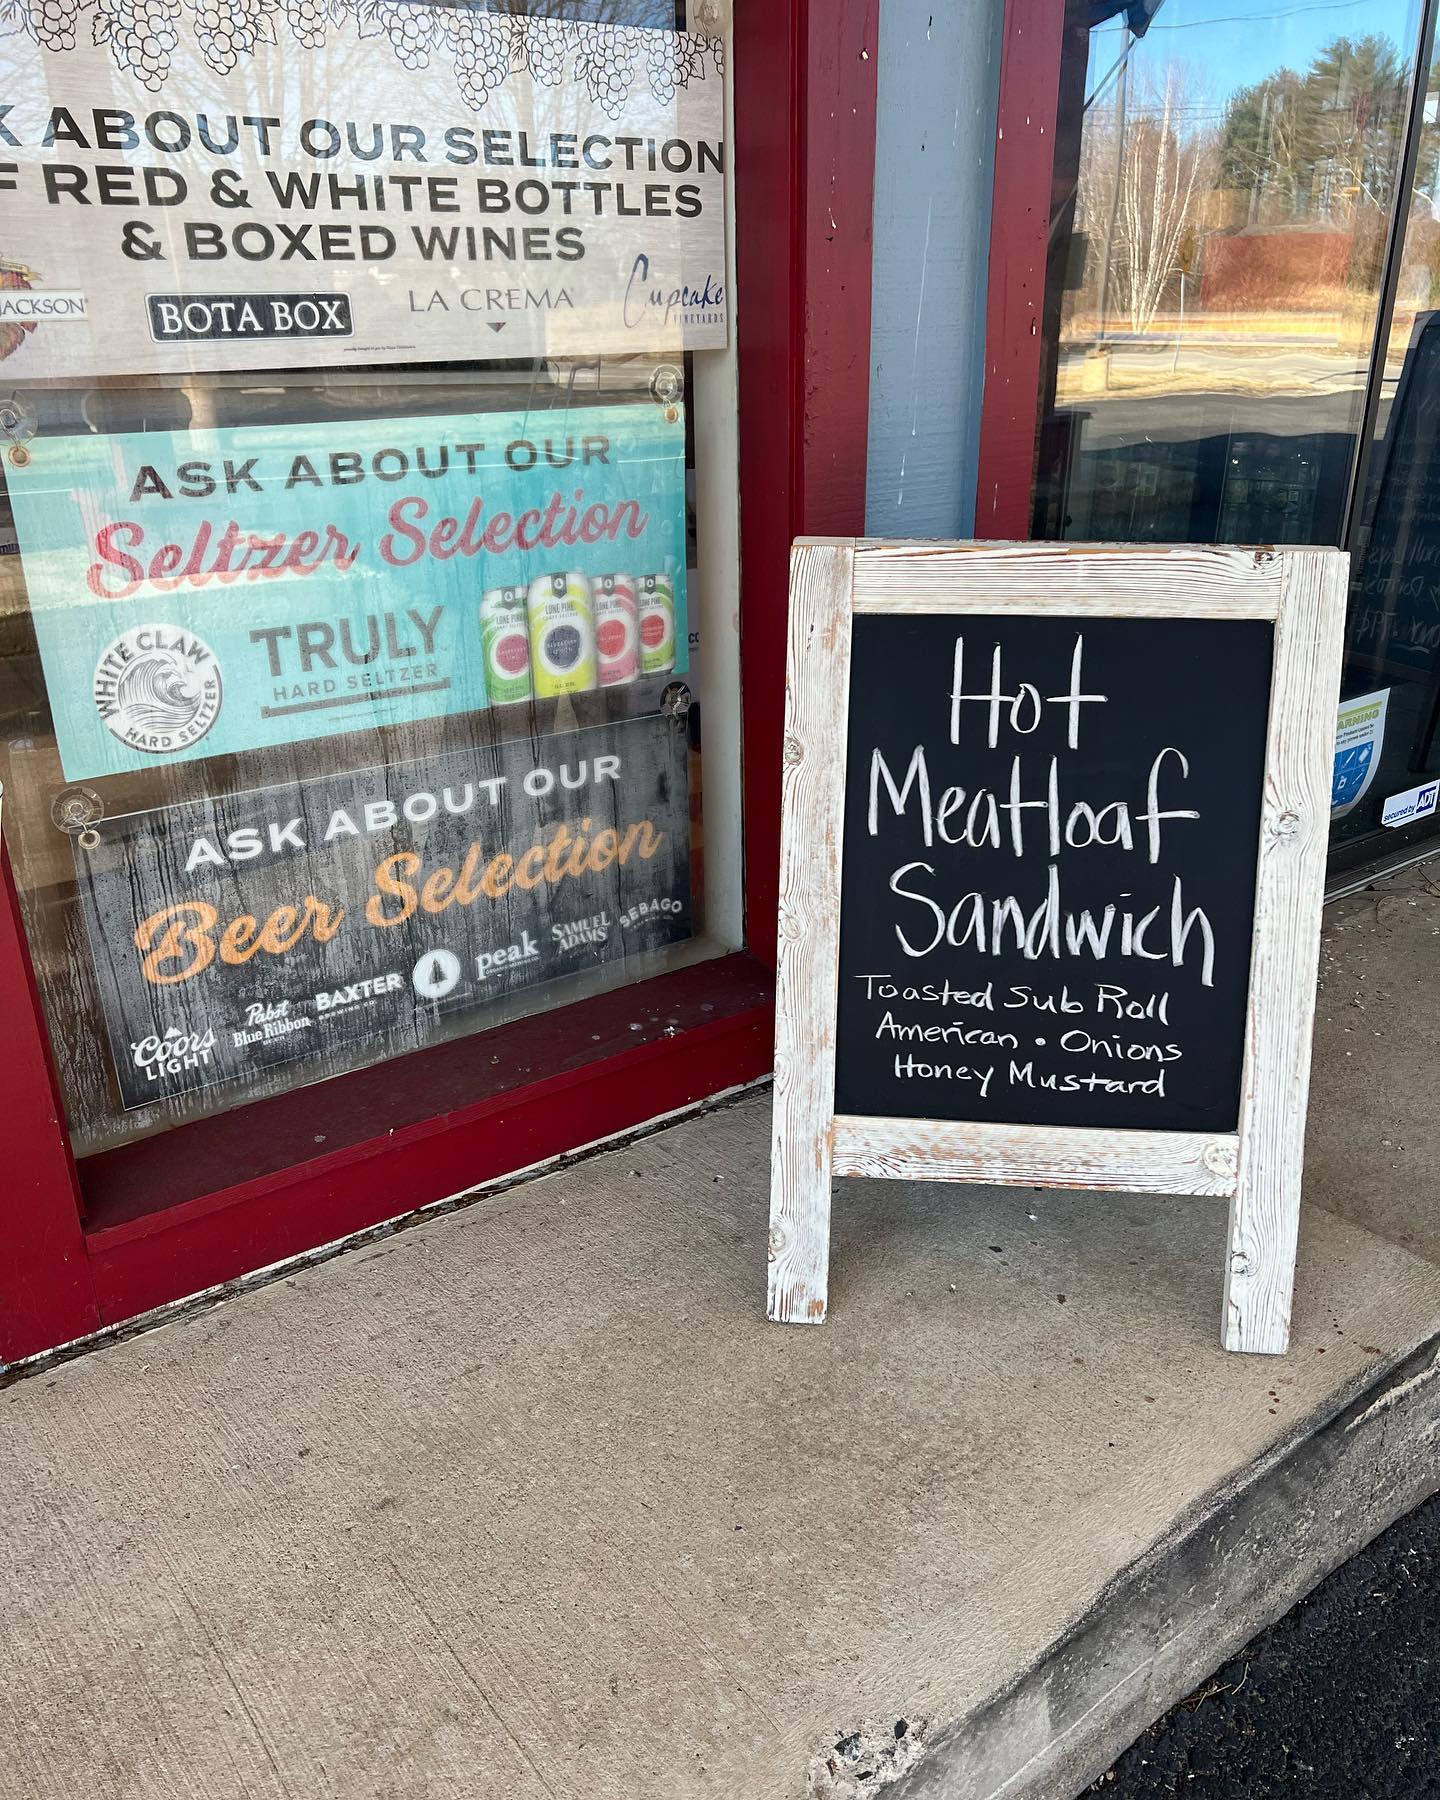 ABOUT OUR SELECTION
RED & WHITE BOTTLES
& BOXED WINES
JACKSON
BOTA BOX
LA CREMA
Cupcake
VINEYARDS
ASK ABOUT OUR
Seltzer Selection
WHITE CLAW
HARD SELTZER
TRULY
HARD SELTZER
LONE PINE
LONE PINE
LONE PINE
LONE PINE
ASK ABOUT OUR
Beer Selection
Coors
LIGHT
Pabst
Blue Ribbon
BAXTER
BREWING CO.
peak
SAMUEL
ADAMS
SEBAGO
Hot
Meatloaf
Sandwich
Toasted Sub Roll
American • Onions
Honey Mustard
secured by ADT